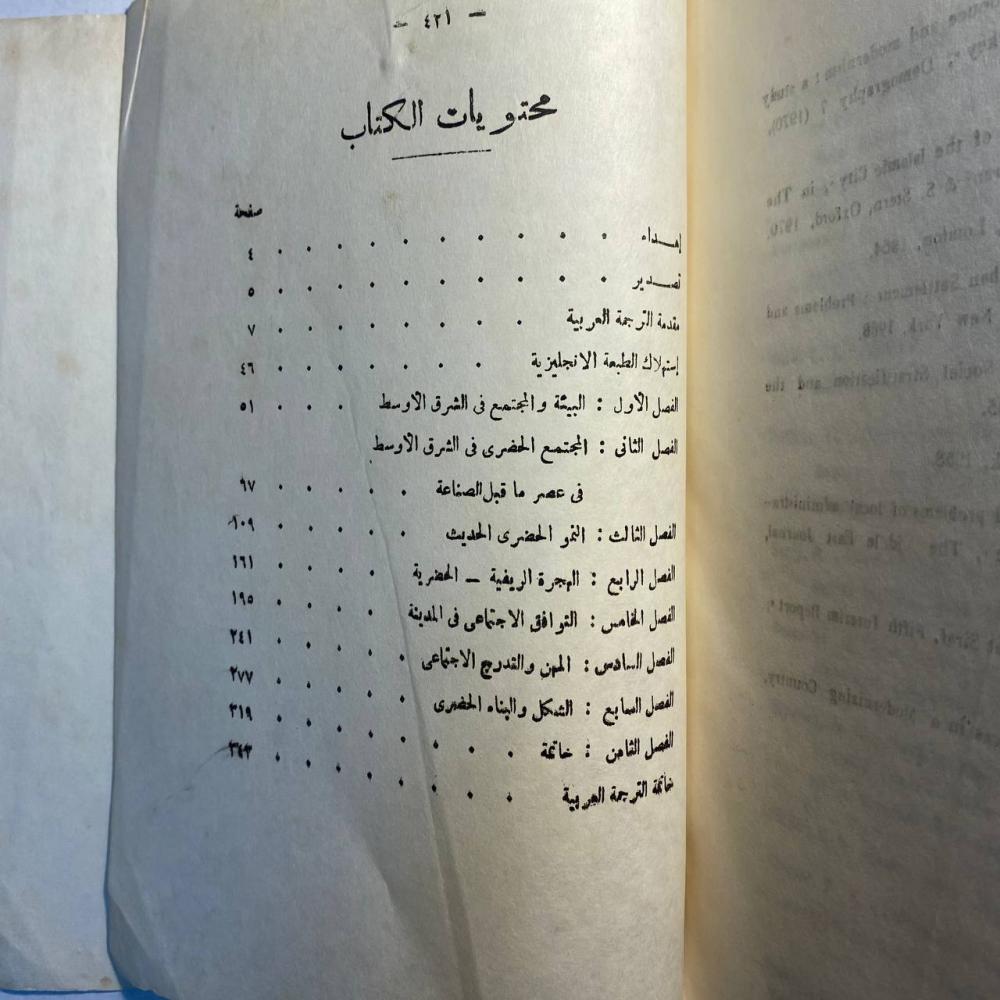 — ٤٢١ —
محتويات الكتاب
صفحة
إهـــداء . . . . . . . . . . ٤
تصـــدير . . . . . . . . . . ٥
مقدمة الترجمة العربية . . . . . . . . ٧
إستهلاك الطبعة الانجليزية . . . . . . . ٤٦
الفصل الأول : البيئة والمجتمع فى الشرق الأوسط . . . ٥١
الفصل الثانى : المجتمع الحضرى فى الشرق الأوسط
فى عصر ما قبل الصناعة . . . . . ٩٧
الفصل الثالث : النمو الحضرى الحديث . . . . . ١٠٩
الفصل الرابع : الهجرة الريفية – الحضرية . . . . ١٦١
الفصل الخامس : التوافق الاجتماعى فى المدينة . . . . ١٩٥
الفصل السادس : المهن والتدرج الاجتماعى . . . . . ٢٤١
الفصل السابع : الشكل والبناء الحضرى . . . . . ٢٧٧
الفصل الثامن : خاتمة . . . . . . . . ٣١٩
خاتمة الترجمة العربية . . . . . . . . ٣٤٣
modernism : a study
Demography ? (1970),
of the Islamic City", in The
S. Stern, Oxford, 1970,
London, 1964.
Settlement : Problems and
New York, 1968
Social Stratification and the
problems of local administra-
East Journal,
Siraf, Fifth Interim Report
in a Modernizing Country,